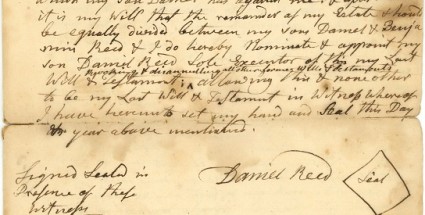 which my Son Daniel has against me & after
it is my Will that the remainder of my Estate Should
be equally divided between my Sons Daniel & Benja
min Reed & I do hereby Nominate & appoint my
Son Daniel Reed Sole Executor of this my Last
Revoking & disannulling all other former wills & testaments
Will & Testament allowing this & none other
to be my Last Will & Testament in Witness whereof
I have hereunto set my hand and Seal this Day
& year above mentioned.
Signed Seald in
Presence of these
Witness
Daniel Reed
Seal